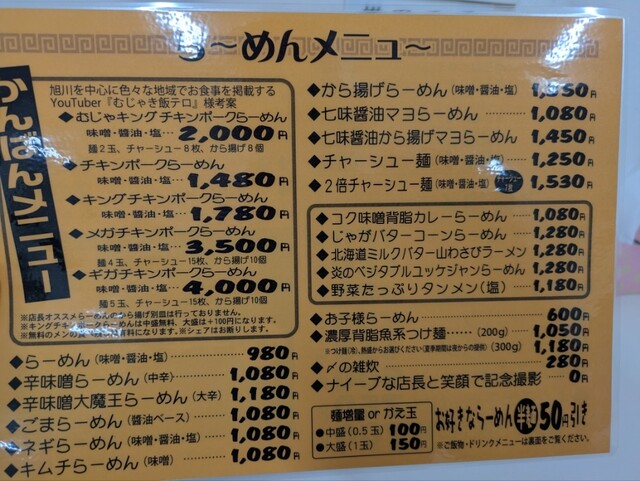 ら〜めんメニュ〜
かんばんメニュー
旭川を中心に色々な地域でお食事を掲載する
YouTuber『むじゃき飯テロ』様考案
◆むじゃキングチキンポークらーめん
味噌・醤油・塩…2,000円
麺2玉、チャーシュー8枚、から揚げ8個
◆チキンポークらーめん
味噌・醤油・塩…1,480円
◆キングチキンポークらーめん
味噌・醤油・塩…1,780円
◆メガチキンポークらーめん
味噌・醤油・塩…3,500円
麺4玉、チャーシュー15枚、から揚げ10個
◆ギガチキンポークらーめん
味噌・醤油・塩…4,000円
麺5玉、チャーシュー15枚、から揚げ10個
※店長オススメらーめんのから揚げ別皿は行っておりません。
※キングチキンポークらーめんは中盛無料、大盛は+100円になります。
※無料のメンの食べきれる量でご注文ください。※シェアはお断りします。
◆らーめん(味噌・醤油・塩)…………980円
◆辛味噌らーめん(中辛)…………1,080円
◆辛味噌大魔王らーめん(大辛)…1,180円
◆ごまらーめん(醤油ベース)……1,080円
◆ネギらーめん(味噌・醤油・塩)…1,080円
◆キムチらーめん(味噌)…………1,080円
◆から揚げらーめん(味噌・醤油・塩)…1,350円
◆七味醤油マヨらーめん……………1,080円
◆七味醤油から揚げマヨらーめん…1,450円
◆チャーシュー麺(味噌・醤油・塩)…1,250円
◆2倍チャーシュー麺(味噌・醤油・塩)…1,530円
◆コク味噌背脂カレーらーめん…1,080円
◆じゃがバターコーンらーめん…1,280円
◆北海道ミルクバター山わさびラーメン…1,280円
◆炎のベジタブルユッケジャンらーめん…1,280円
◆野菜たっぷりタンメン(塩)…1,180円
◆お子様らーめん……………………600円
◆濃厚背脂魚系つけ麺……(200g)…1,050円
※つけ麺(冷)、熱盛からお選びください(夏季期間は夜からの提供)(300g)…1,180円
◆〆の雑炊……………………………280円
◆ナイーブな店長と笑顔で記念撮影…0円
麺増量 or かえ玉
●中盛(0.5玉)100円
●大盛(1玉)150円
お好きならーめん半麺50円引き
※ご飯物・ドリンクメニューは裏面をご覧ください。